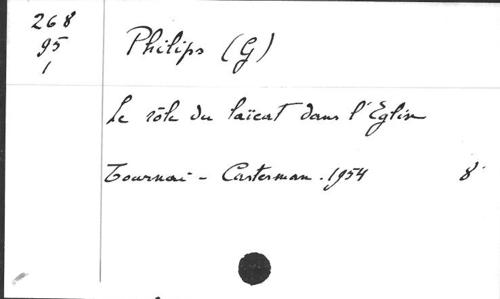 268
95
1
Philips (G)
Le rôle du laïcat dans l'Eglise
Tournai - Casterman. 1954 8°